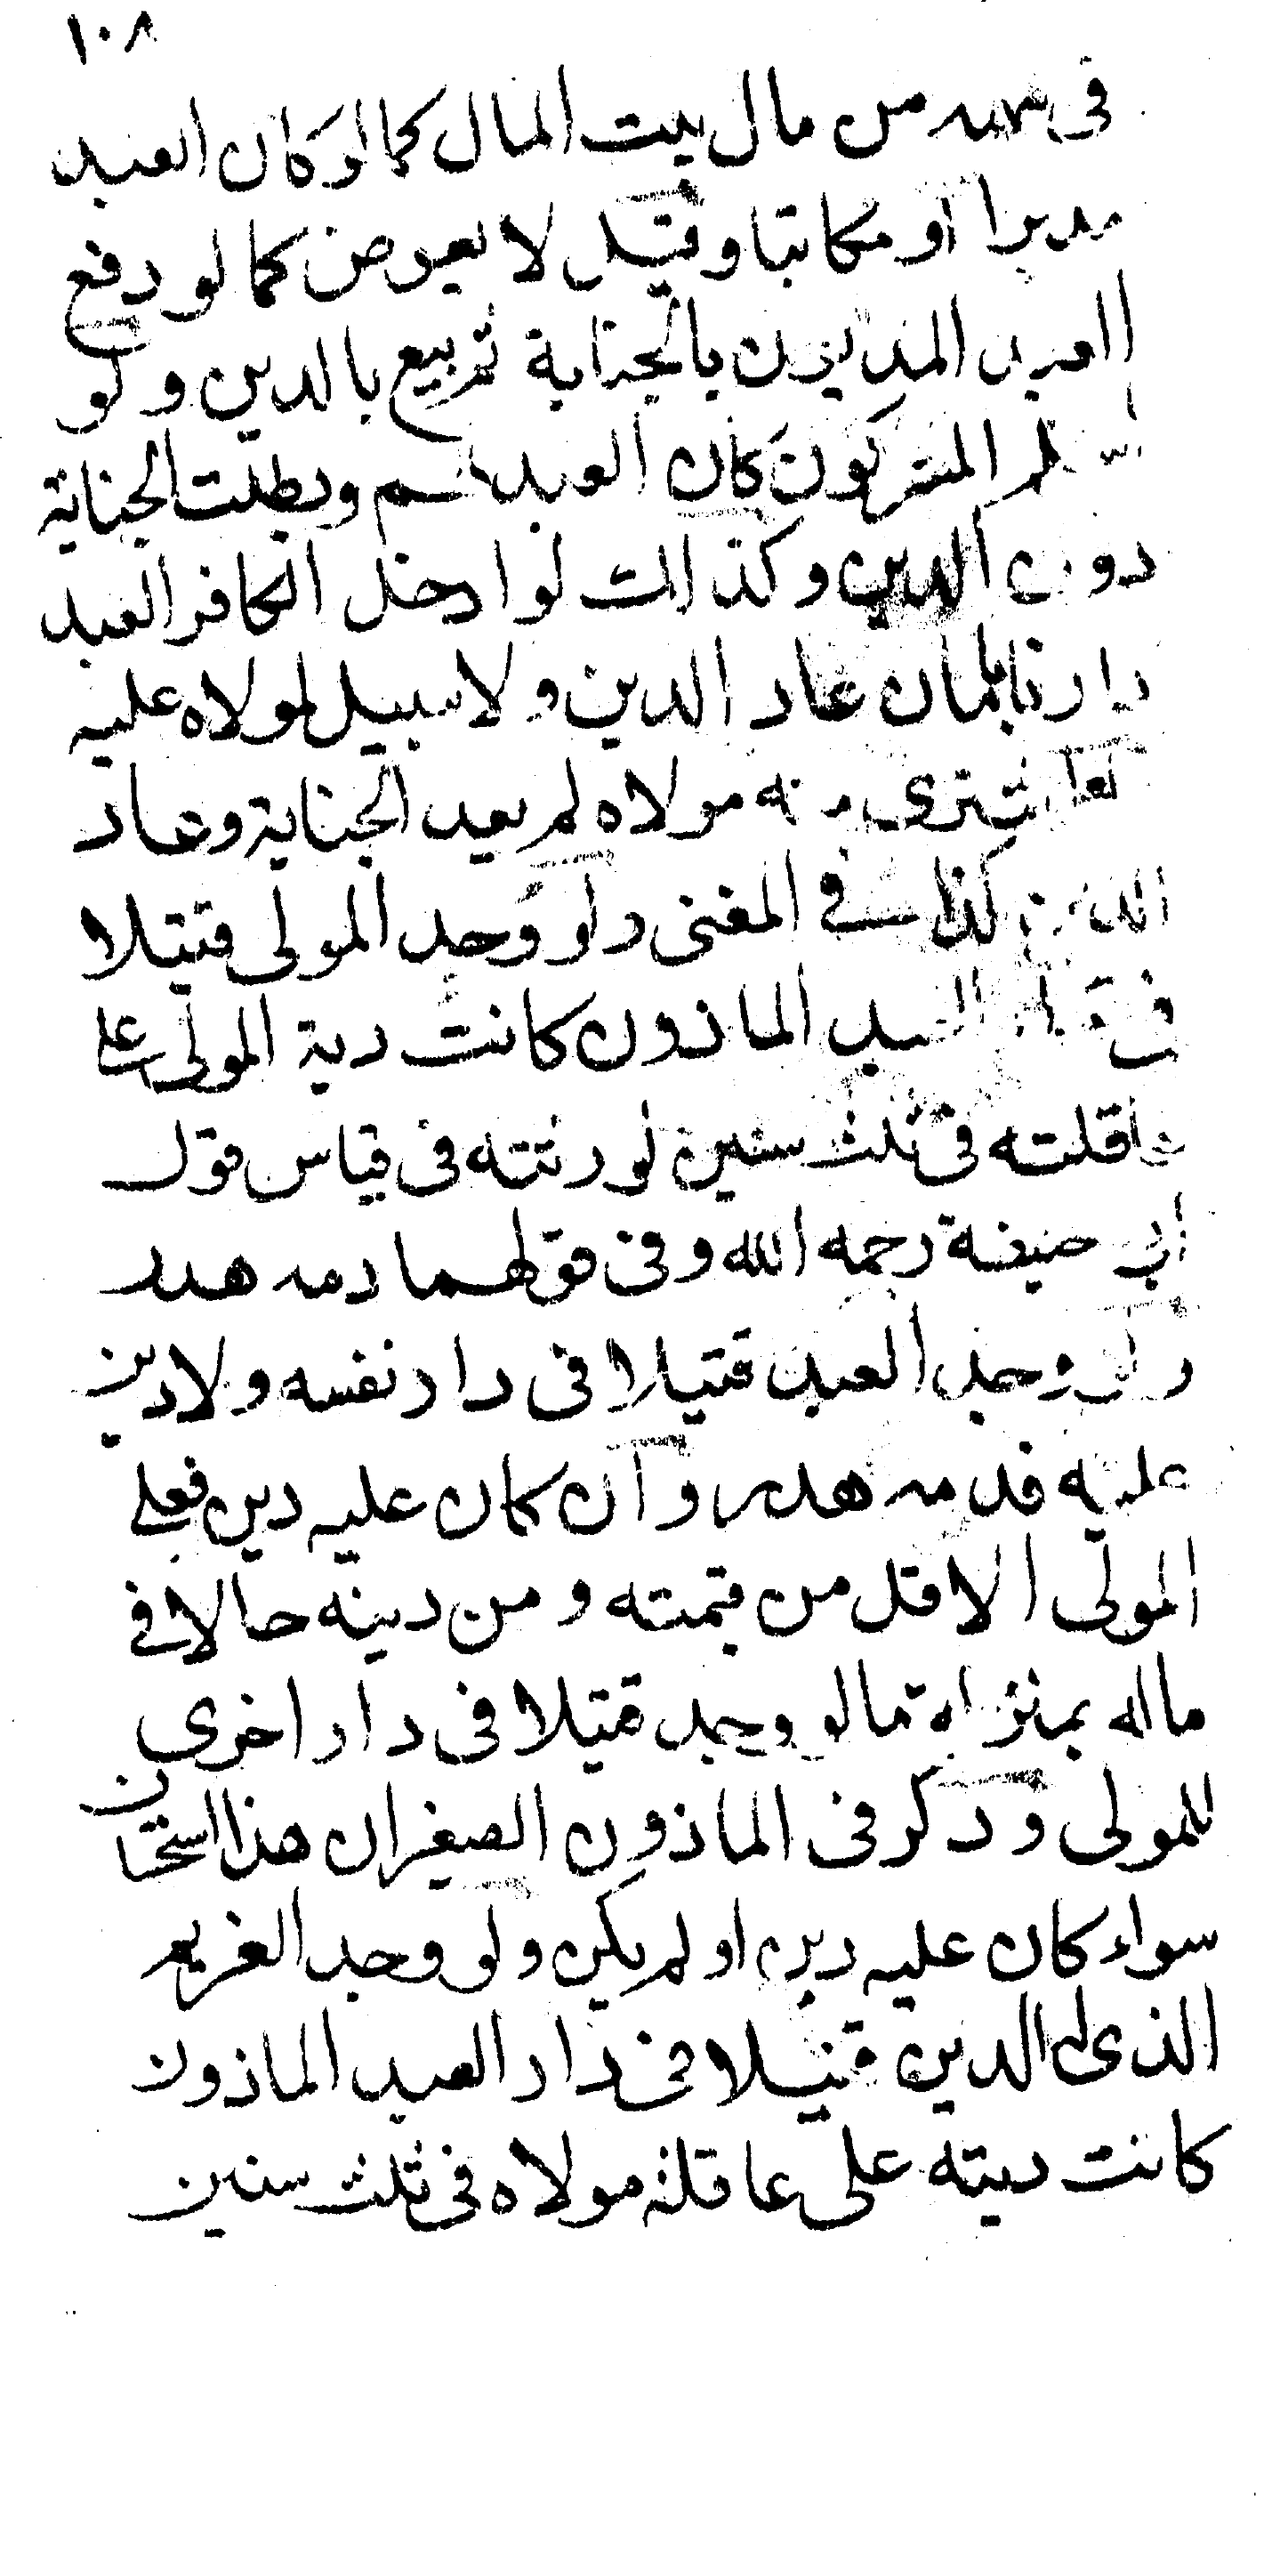 ١٠٨
في من مال بيت المال كما لو كان العبد
مدبرا او مكاتبا وقيل لا يعوض كما لو دفع
العبد المديون بالجناية ثم بيع بالدين ولو
اسلم المشركون كان العبد لهم وبطلت الجناية
دون الدين وكذلك لو ادخل الكافر العبد
دارنا بامان عاد الدين ولا سبيل لمولاه عليه
اشترى منه مولاه لم يعد الجناية وعاد
الدين كذا في المغنى ولو وجد المولى قتيلا
في العبد الماذون كانت دية المولى على
عاقلته في ثلث سنين لورثته في قياس قول
ابي حنيفة رحمه الله وفي قولهما دمه هدر
ولو وجد العبد قتيلا في دار نفسه ولا دين
عليه فدمه هدر وان كان عليه دين فعلى
المولى الاقل من قيمته ومن دينه حالا في
ماله بمنزلة ما لو وجد قتيلا في دار اخرى
للمولى وذكر في الماذون الصغير ان هذا استحسان
سواء كان عليه دين او لم يكن ولو وجد الغريم
الذى له الدين قتيلا في دار العبد الماذون
كانت ديته على عاقلة مولاه في ثلث سنين